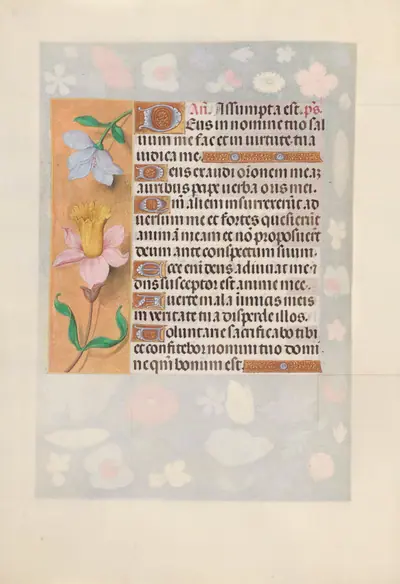 Añ. Assumpta est. ps.
Deus in nomine tuo sal
uum me fac et in uirtute tua
iudica me.
Deus exaudi orōnem meaz
auribus percipe uerba oris mei.
Qm̄ alieni insurrexerūt ad
uersum me et fortes quesierūt
animā meam et nō proposuerūt
deum ante conspectum suum.
Ecce eni deus adiuuat me et
dn̄s susceptor est anime mee.
Auerte mala inimicis meis
in veritate tua disperde illos.
Uoluntarie sacrificabo tibi
et confitebor nomini tuo domi-
ne qm̄ bonum est.